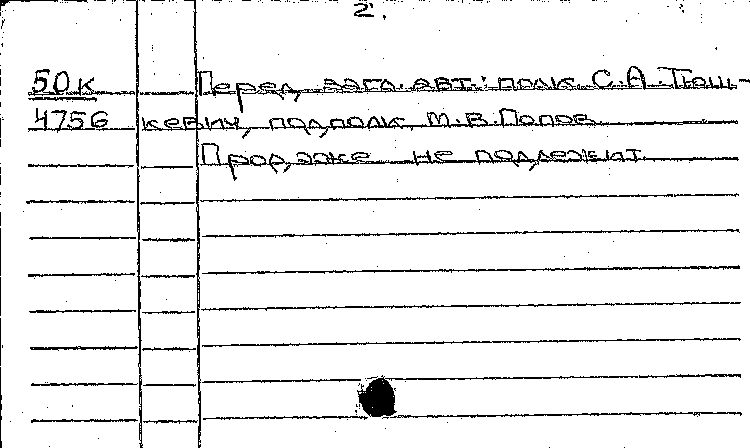 2.
50к Перед загл. авт.: полк. С.А. Тюш-
4756 кевич, подполк. М.В. Попов.
Продаже не подлежит.